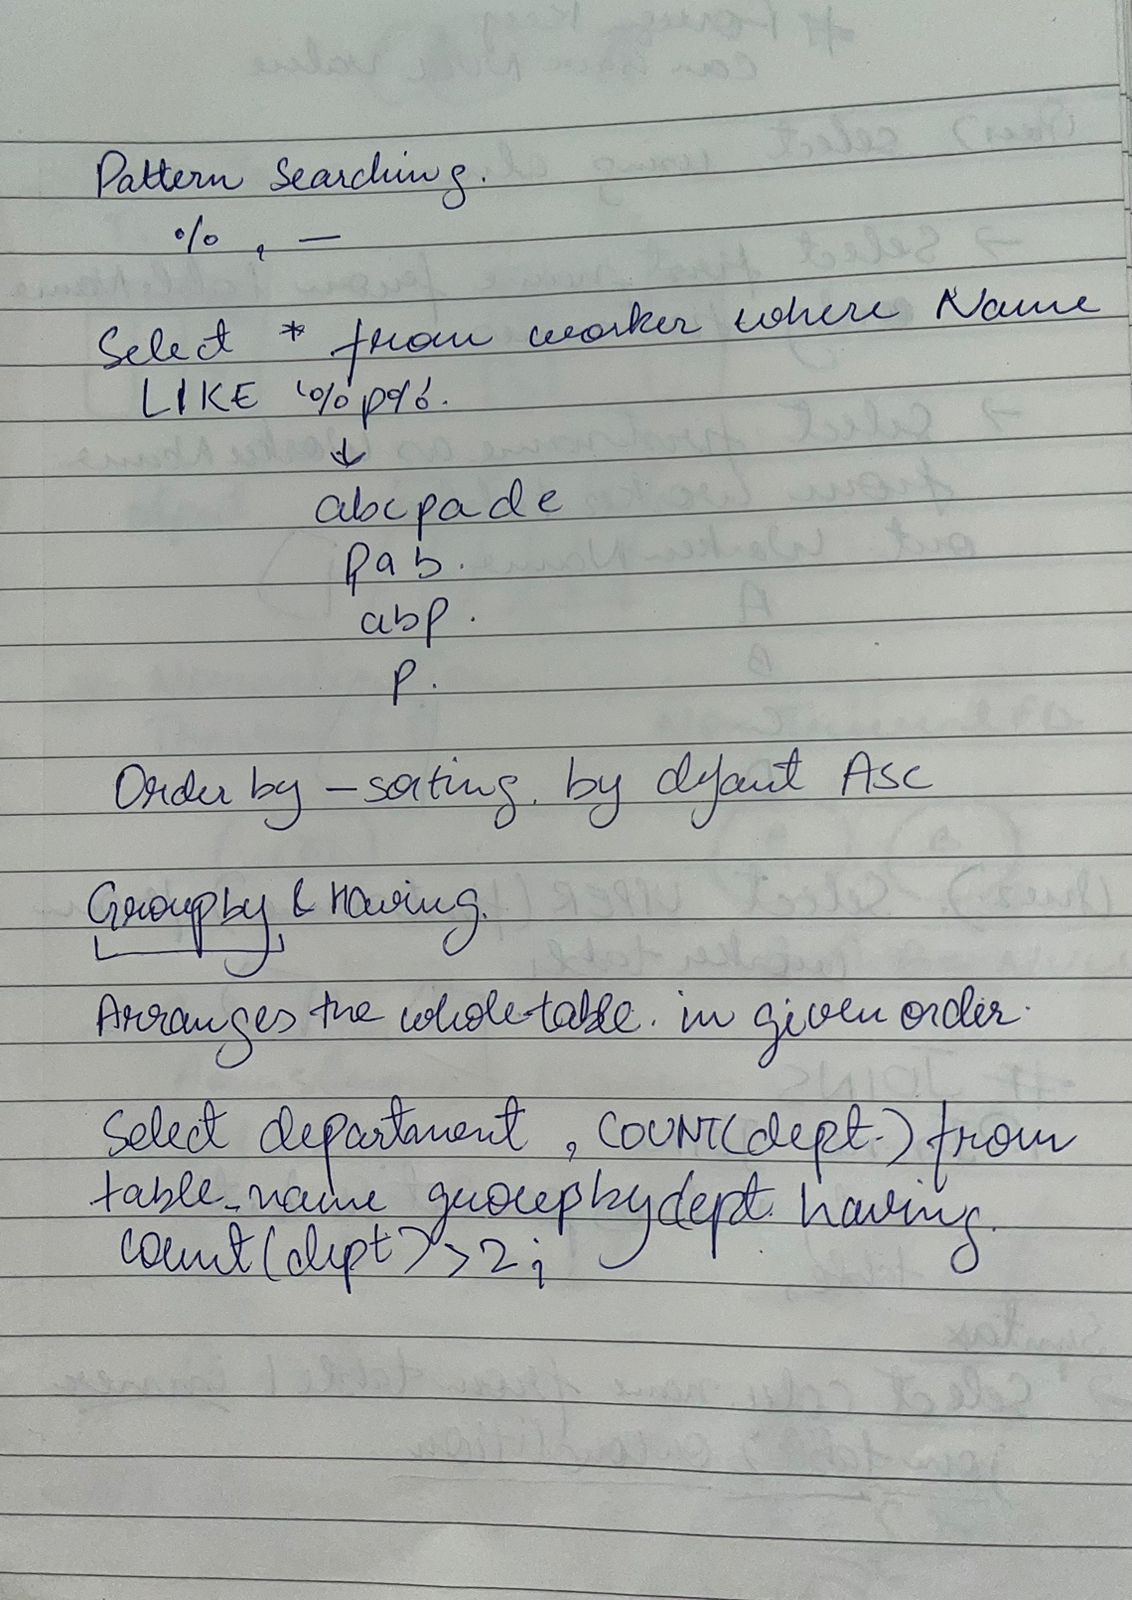 Pattern Searching.
% , _
Select * from worker where Name
LIKE '%p%'.
↓
abcpade
pab.
abp.
p.
Order by - sorting. by default Asc
Group by & having.
Arranges the whole table. in given order.
Select department, COUNT(dept.) from
table_name group by dept. having.
count(dept) > 2;